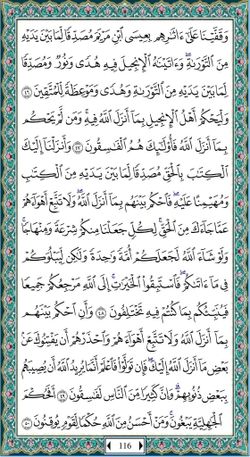 وَقَفَّيْنَا عَلَىٰٓ ءَاثَٰرِهِم بِعِيسَى ٱبْنِ مَرْيَمَ مُصَدِّقًا لِّمَا بَيْنَ يَدَيْهِ
مِنَ ٱلتَّوْرَىٰةِ ۖ وَءَاتَيْنَٰهُ ٱلْإِنجِيلَ فِيهِ هُدًى وَنُورٌ وَمُصَدِّقًا
لِّمَا بَيْنَ يَدَيْهِ مِنَ ٱلتَّوْرَىٰةِ وَهُدًى وَمَوْعِظَةً لِّلْمُتَّقِينَ ٤٦
وَلْيَحْكُمْ أَهْلُ ٱلْإِنجِيلِ بِمَآ أَنزَلَ ٱللَّهُ فِيهِ ۚ وَمَن لَّمْ يَحْكُم
بِمَآ أَنزَلَ ٱللَّهُ فَأُو۟لَٰٓئِكَ هُمُ ٱلْفَٰسِقُونَ ٤٧ وَأَنزَلْنَآ إِلَيْكَ
ٱلْكِتَٰبَ بِٱلْحَقِّ مُصَدِّقًا لِّمَا بَيْنَ يَدَيْهِ مِنَ ٱلْكِتَٰبِ
وَمُهَيْمِنًا عَلَيْهِ ۖ فَٱحْكُم بَيْنَهُم بِمَآ أَنزَلَ ٱللَّهُ ۖ وَلَا تَتَّبِعْ أَهْوَآءَهُمْ
عَمَّا جَآءَكَ مِنَ ٱلْحَقِّ ۚ لِكُلٍّ جَعَلْنَا مِنكُمْ شِرْعَةً وَمِنْهَاجًا ۚ
وَلَوْ شَآءَ ٱللَّهُ لَجَعَلَكُمْ أُمَّةً وَٰحِدَةً وَلَٰكِن لِّيَبْلُوَكُمْ
فِى مَآ ءَاتَىٰكُمْ ۖ فَٱسْتَبِقُوا۟ ٱلْخَيْرَٰتِ ۚ إِلَى ٱللَّهِ مَرْجِعُكُمْ جَمِيعًا
فَيُنَبِّئُكُم بِمَا كُنتُمْ فِيهِ تَخْتَلِفُونَ ٤٨ وَأَنِ ٱحْكُم بَيْنَهُم
بِمَآ أَنزَلَ ٱللَّهُ وَلَا تَتَّبِعْ أَهْوَآءَهُمْ وَٱحْذَرْهُمْ أَن يَفْتِنُوكَ عَنۢ
بَعْضِ مَآ أَنزَلَ ٱللَّهُ إِلَيْكَ ۖ فَإِن تَوَلَّوْا۟ فَٱعْلَمْ أَنَّمَا يُرِيدُ ٱللَّهُ أَن يُصِيبَهُم
بِبَعْضِ ذُنُوبِهِمْ ۗ وَإِنَّ كَثِيرًا مِّنَ ٱلنَّاسِ لَفَٰسِقُونَ ٤٩ أَفَحُكْمَ
ٱلْجَٰهِلِيَّةِ يَبْغُونَ ۚ وَمَنْ أَحْسَنُ مِنَ ٱللَّهِ حُكْمًا لِّقَوْمٍ يُوقِنُونَ ٥٠
116